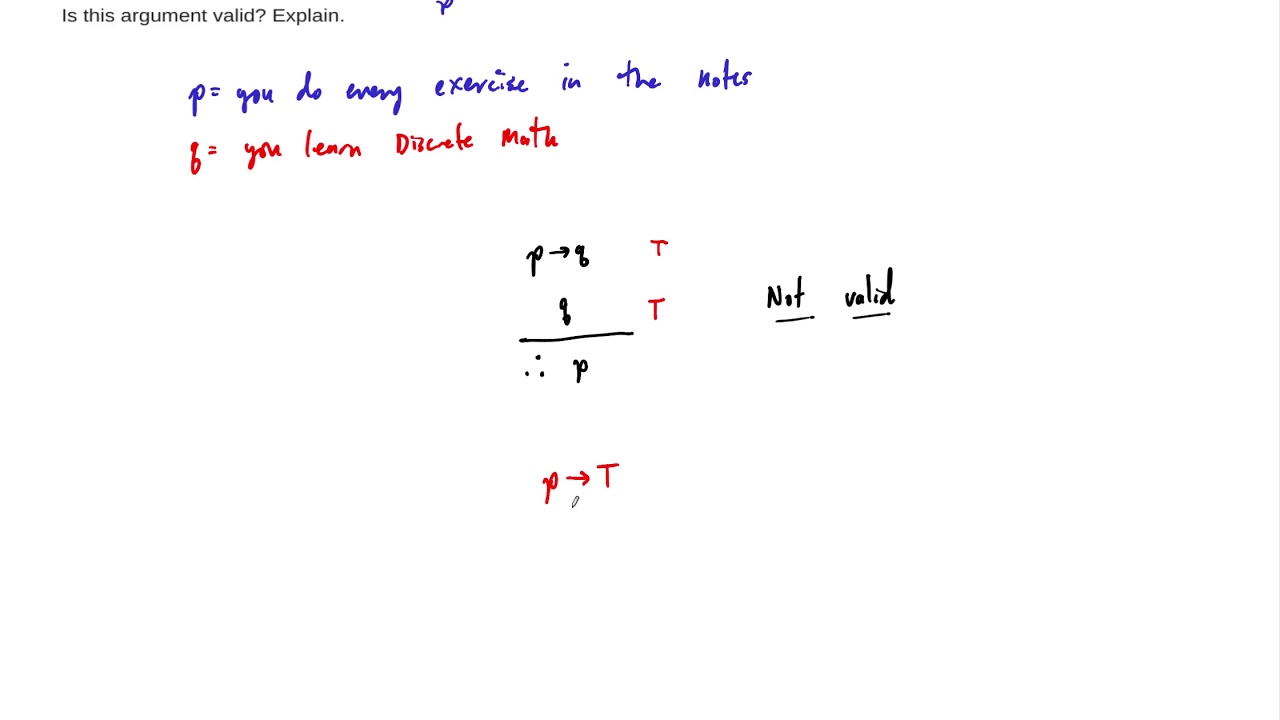 Is this argument valid? Explain.
p
p = you do every exercise in the notes
q = you learn Discrete Math
p → q T
q T
Not valid
∴ p
p → T